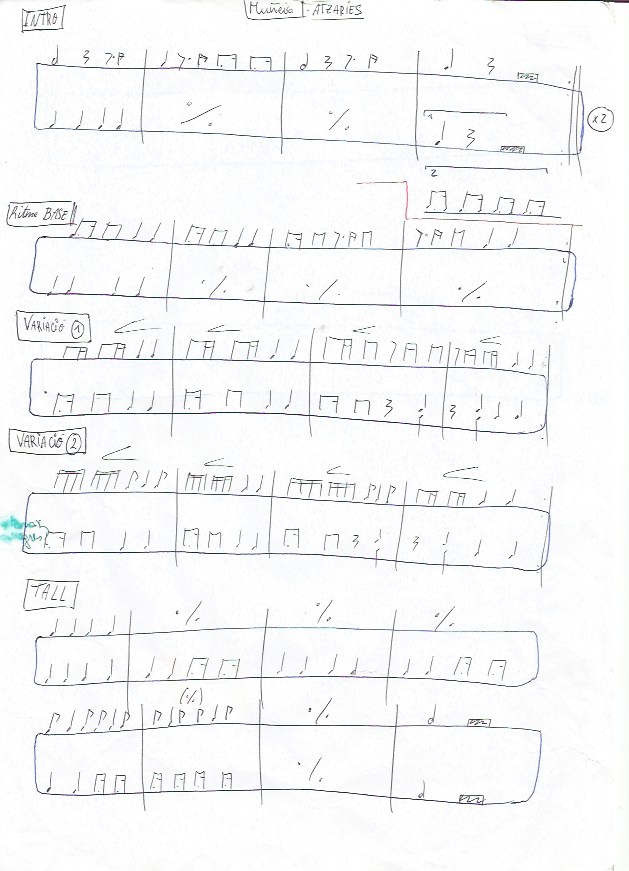 INTRO
Muñeira - ATZARIES
x2
1
2
Ritme BASE
VARIACIÓ 1
VARIACIÓ 2
TALL